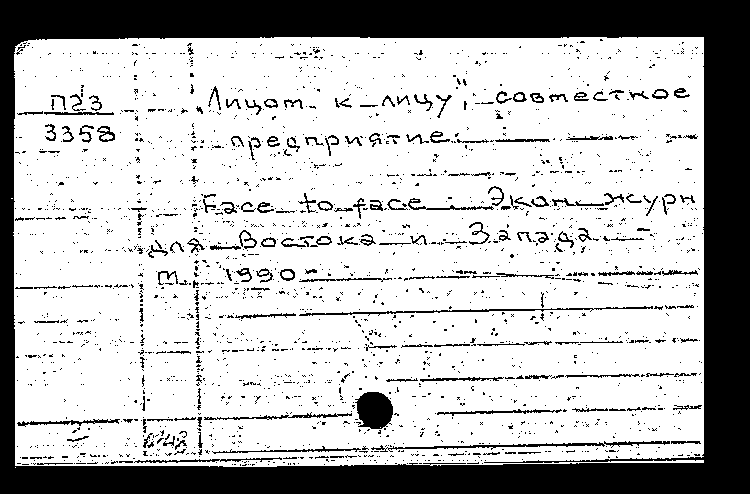 П23
3358
„Лицом к лицу", совместное
предприятие.
Face to face : Экон. журн
для Востока и Запада. -
М. 1990 -